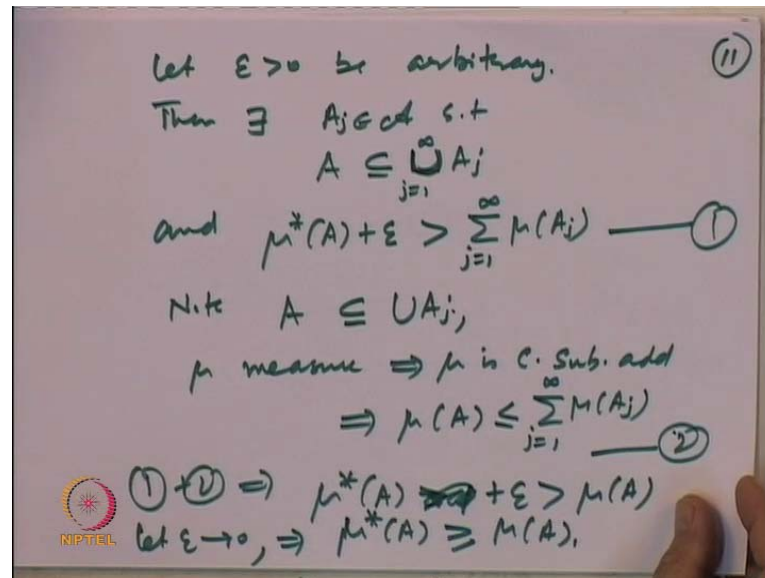 Let ε > 0 be arbitrary. ⑪
Then ∃ Aj ∈ 𝒜 s.t
A ⊆ ⋃_{j=1}^{∞} Aj
and μ*(A) + ε > ∑_{j=1}^{∞} μ(Aj) —— ①
Note A ⊆ ∪Aj,
μ measure ⇒ μ is c. sub. add
⇒ μ(A) ≤ ∑_{j=1}^{∞} μ(Aj) —— ②
① + ② ⇒ μ*(A) + ε > μ(A)
Let ε → 0, ⇒ μ*(A) ≥ μ(A).
NPTEL